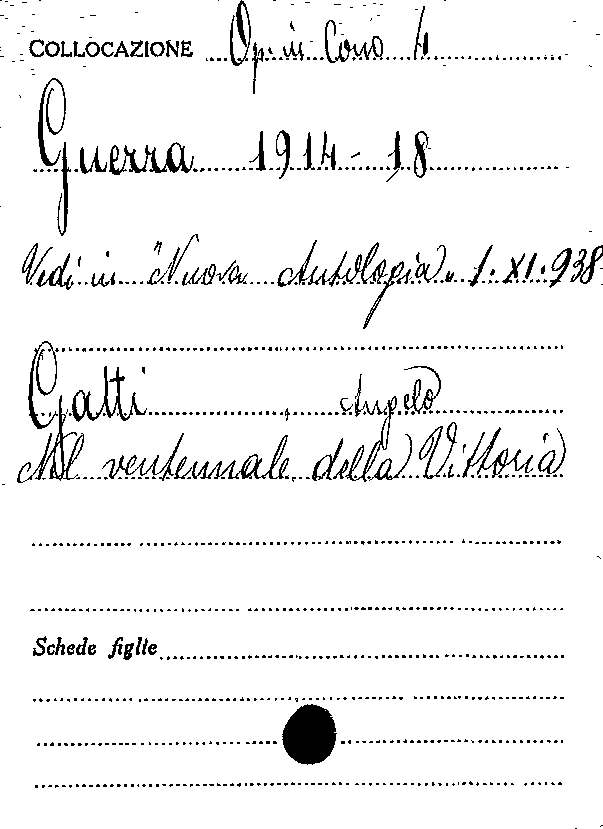 COLLOCAZIONE Op. in Corso 4
Guerra 1914-18
Vedi in "Nuova Antologia" 1.XI.938
Gatti, Angelo
Nel ventennale della Vittoria
Schede figlie